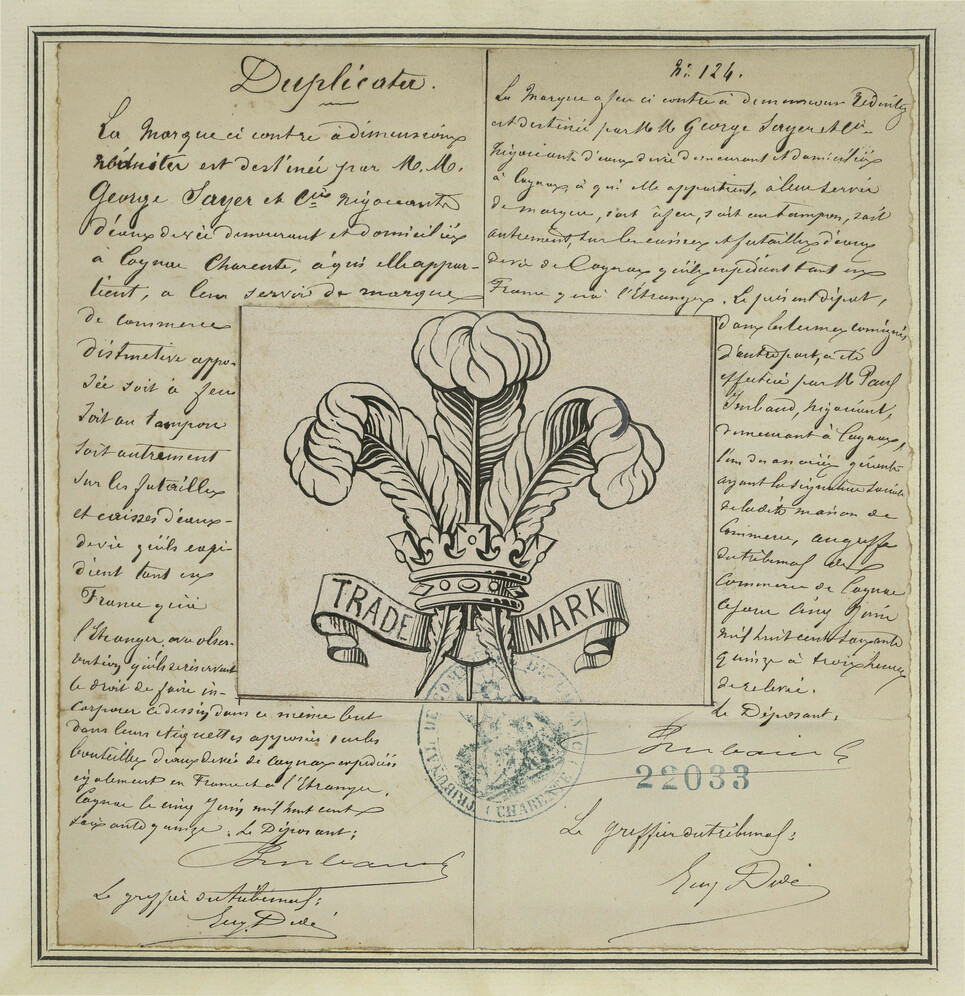 Duplicata.
La Marque ci contre à dimensions
réduites est destinée par M.M.
George Sayer et Cie négociants
d'eaux de vie demeurant et domiciliés
à Cognac Charente, à qui elle appar-
tient, a leur servir de marque
de commerce
distinctive appo-
sée soit à feu
soit au tampon
soit autrement
sur les futailles
et caisses d'eaux-
de vie qu'ils expé-
dient tant en
France qu'à
l'Etranger, avec obser-
vation qu'ils se réservent
le droit de faire in-
corporer ce dessin dans ce même but
dans leurs étiquettes apposées sur les
bouteilles d'eaux de vie de Cognac expédiées
également en France et à l'Etranger.
Cognac le cinq Juin mil huit cent
soixante quinze. Le Déposant;
Le greffier du tribunal;
Eug. Didé
No. 124.
La Marque a feu ci contre à dimensions réduites
est destinée par M M George Sayer et Cie
négociants d'eaux de vie demeurant et domiciliés
à Cognac à qui elle appartient, à leur servir
de marque, soit à feu, soit au tampon, soit
autrement, sur les caisses et futailles d'eaux
de vie de Cognac qu'ils expédient tant en
France qu'à l'Etranger. Le présent dépôt,
dans les termes consignés
d'autre part, a été
effectué par M Paul
négociant,
demeurant à Cognac,
l'un des associés gérants
ayant la signature sociale
de la dite maison de
Commerce, au greffe
du tribunal de
Commerce de Cognac
ce jour cinq Juin
mil huit cent soixante
quinze à trois heures
de relevée.
Le Déposant;
22033
Le greffier du tribunal;
Eug Didé
TRADE MARK
TRIBUNAL DE COMMERCE DE COGNAC (CHARENTE)